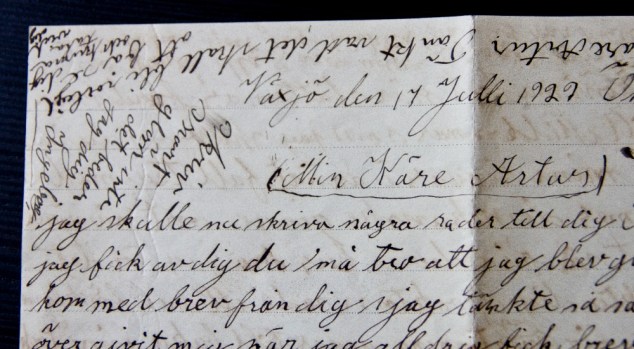 Växjö den 17 Julli 1929
(Min Käre Artur)
jag skulle nu skriva några rader till dig
jag fick av dig du må tro att jag blev
kom med brev från dig jag tänkte så
över givit mig när jag alldrig fick brev
Käre Artur Tänk vad det skall
bli roligt att
Skriv
snart
glöm inte
det beder
jag dig
Ingeborg